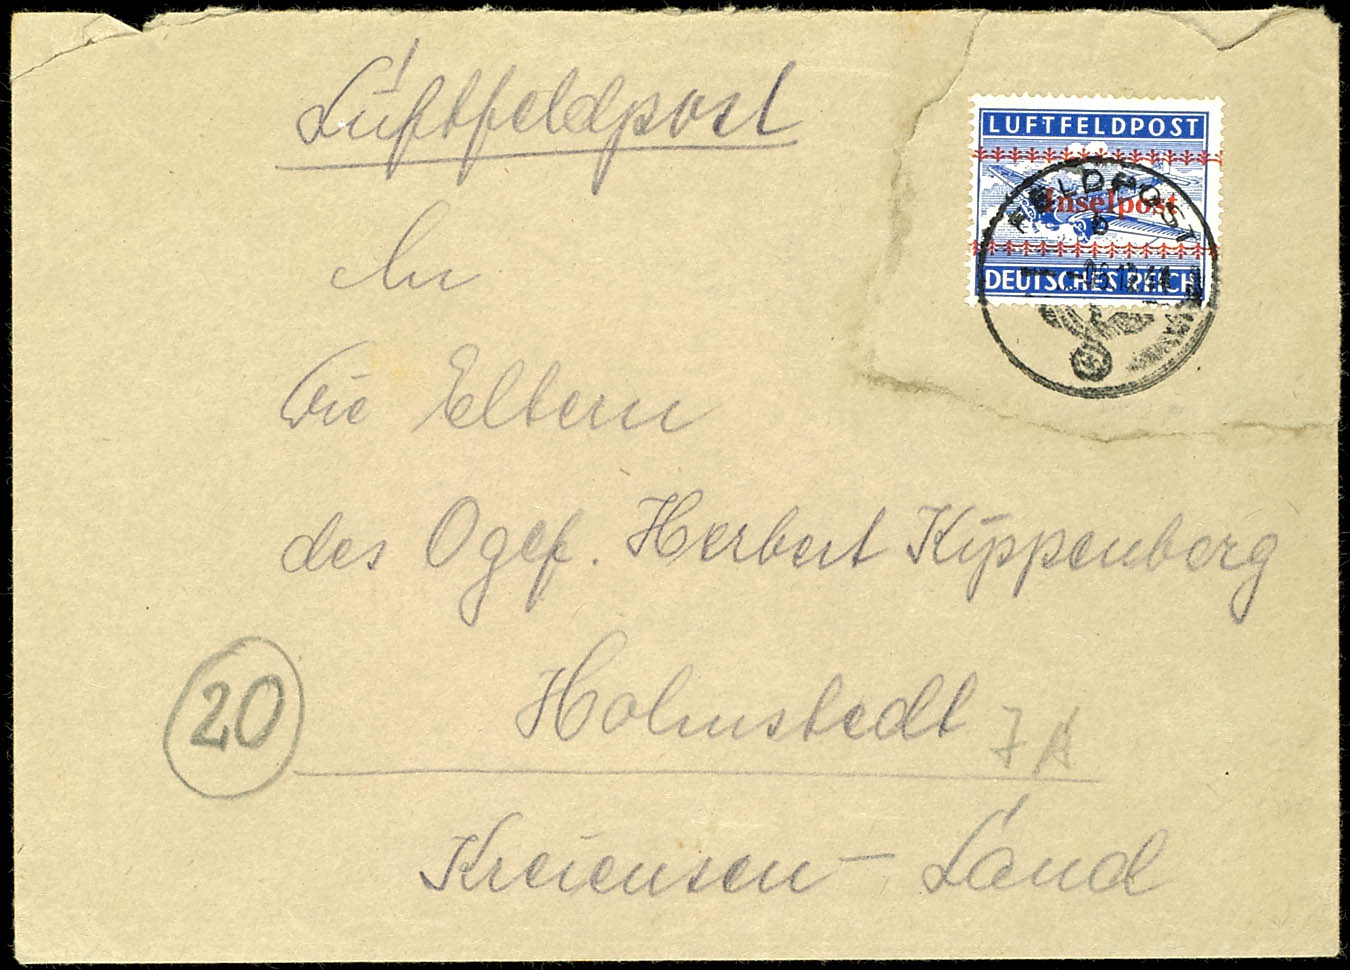 Luftfeldpost
LUFTFELDPOST
Inselpost
DEUTSCHES REICH
FELDPOST
b
An
die Eltern
des Ogef. Herbert Küppenberg
20
Holmstedt
Kreiensen - Land